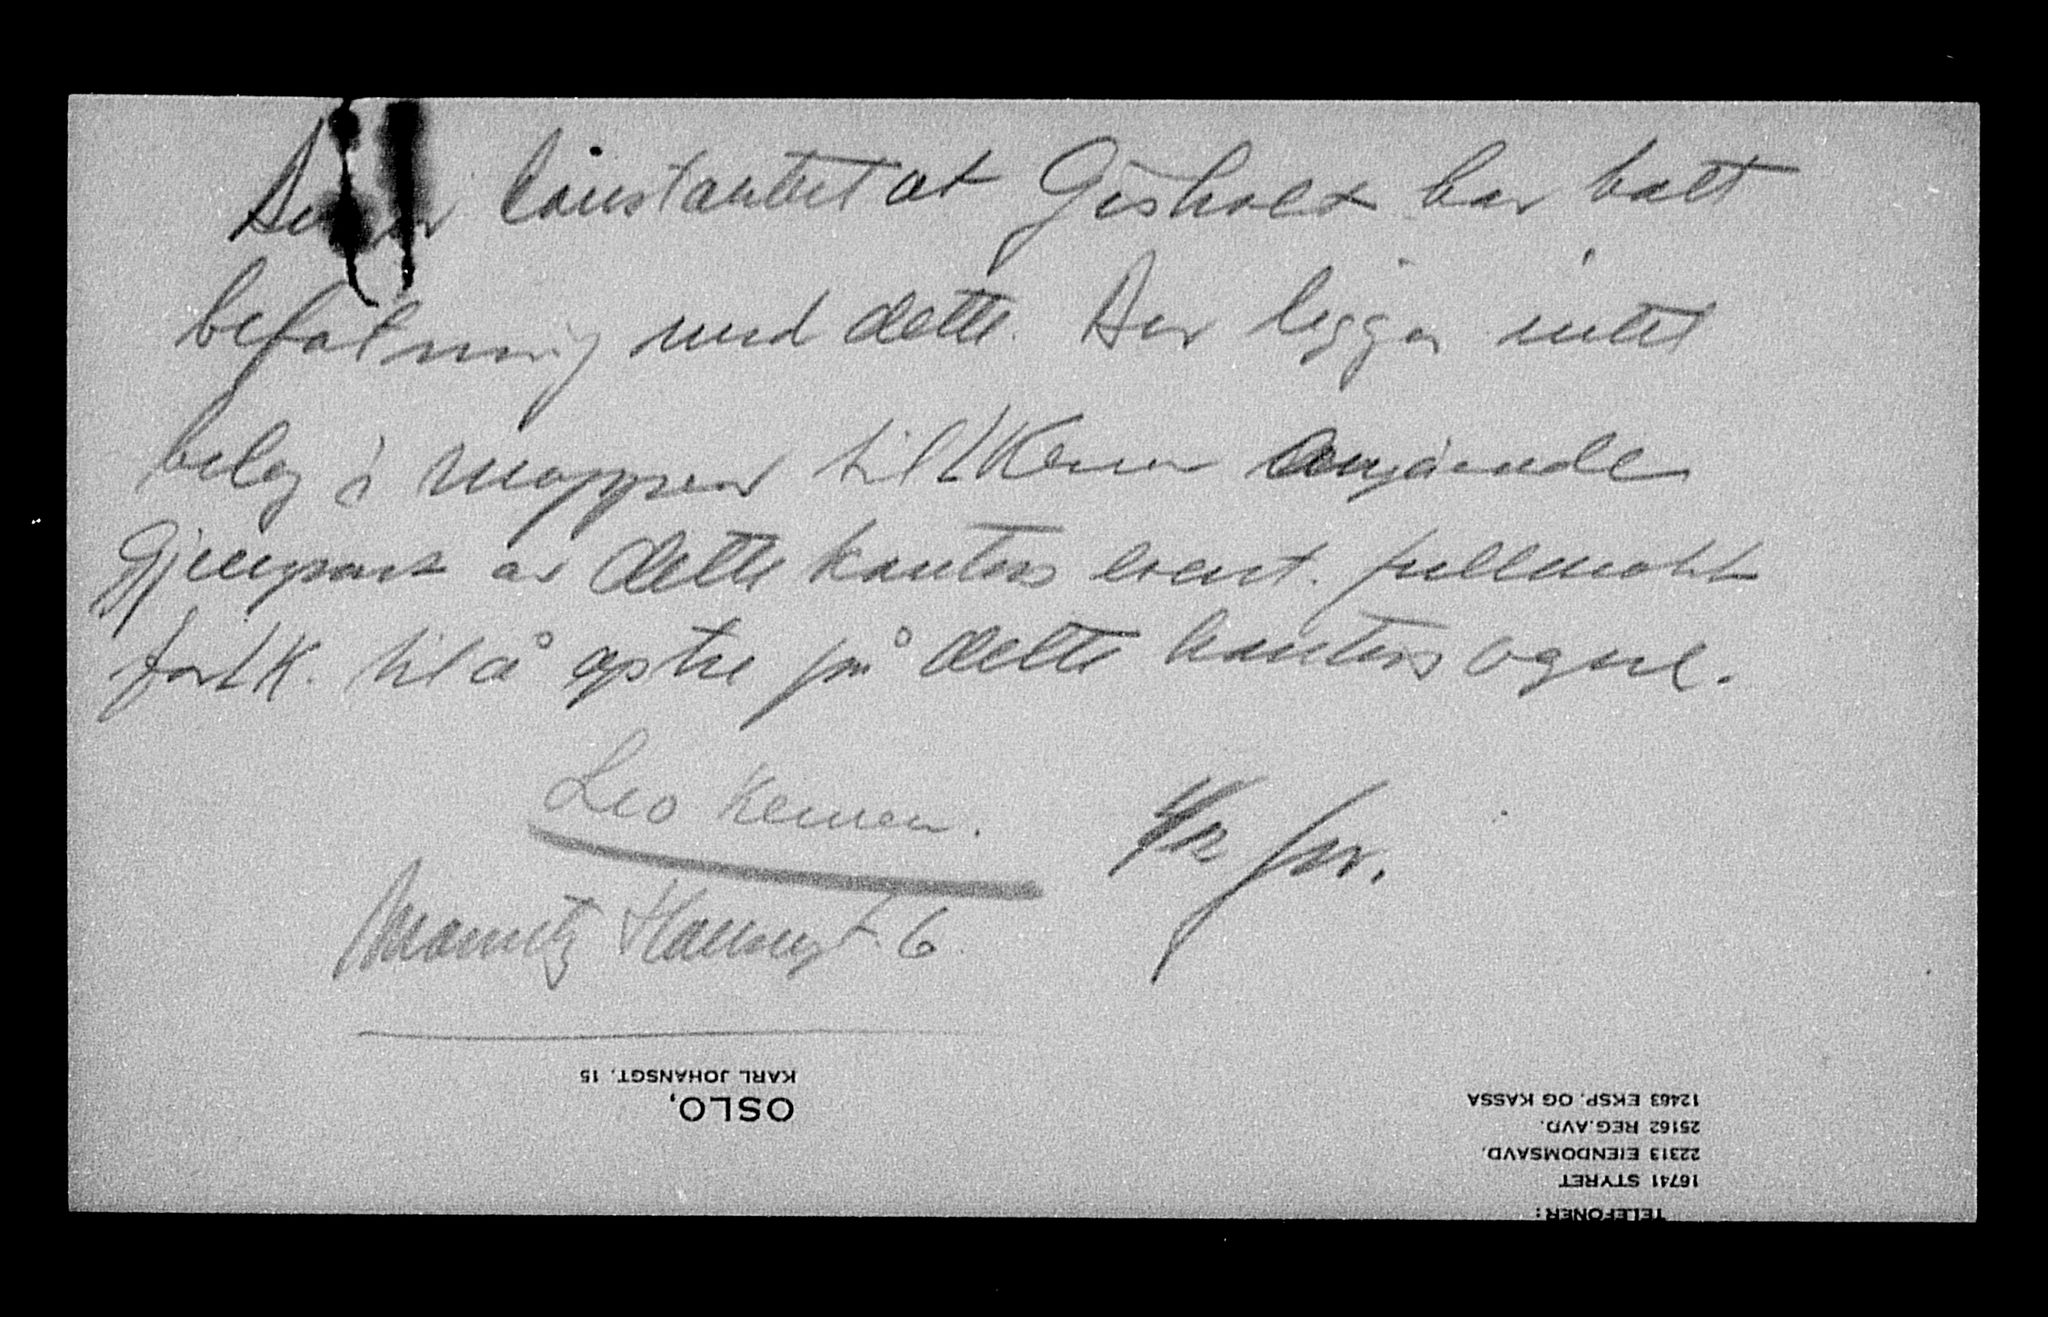 Det er konstantert at Gisholt har hatt
befatning med dette. Der ligger intet
beleg i mappen til L Kernen angående
Gjenpart av dette kontors event. fullmakt
for L K. til å optre på dette kontors vegne.
Leo Kernen.
4/12
6.
OSLO,
KARL JOHANSGT. 15
TELEFONER:
16741 STYRET
22313 EIENDOMSAVD.
25162 REG.AVD.
12463 EKSP. OG KASSA